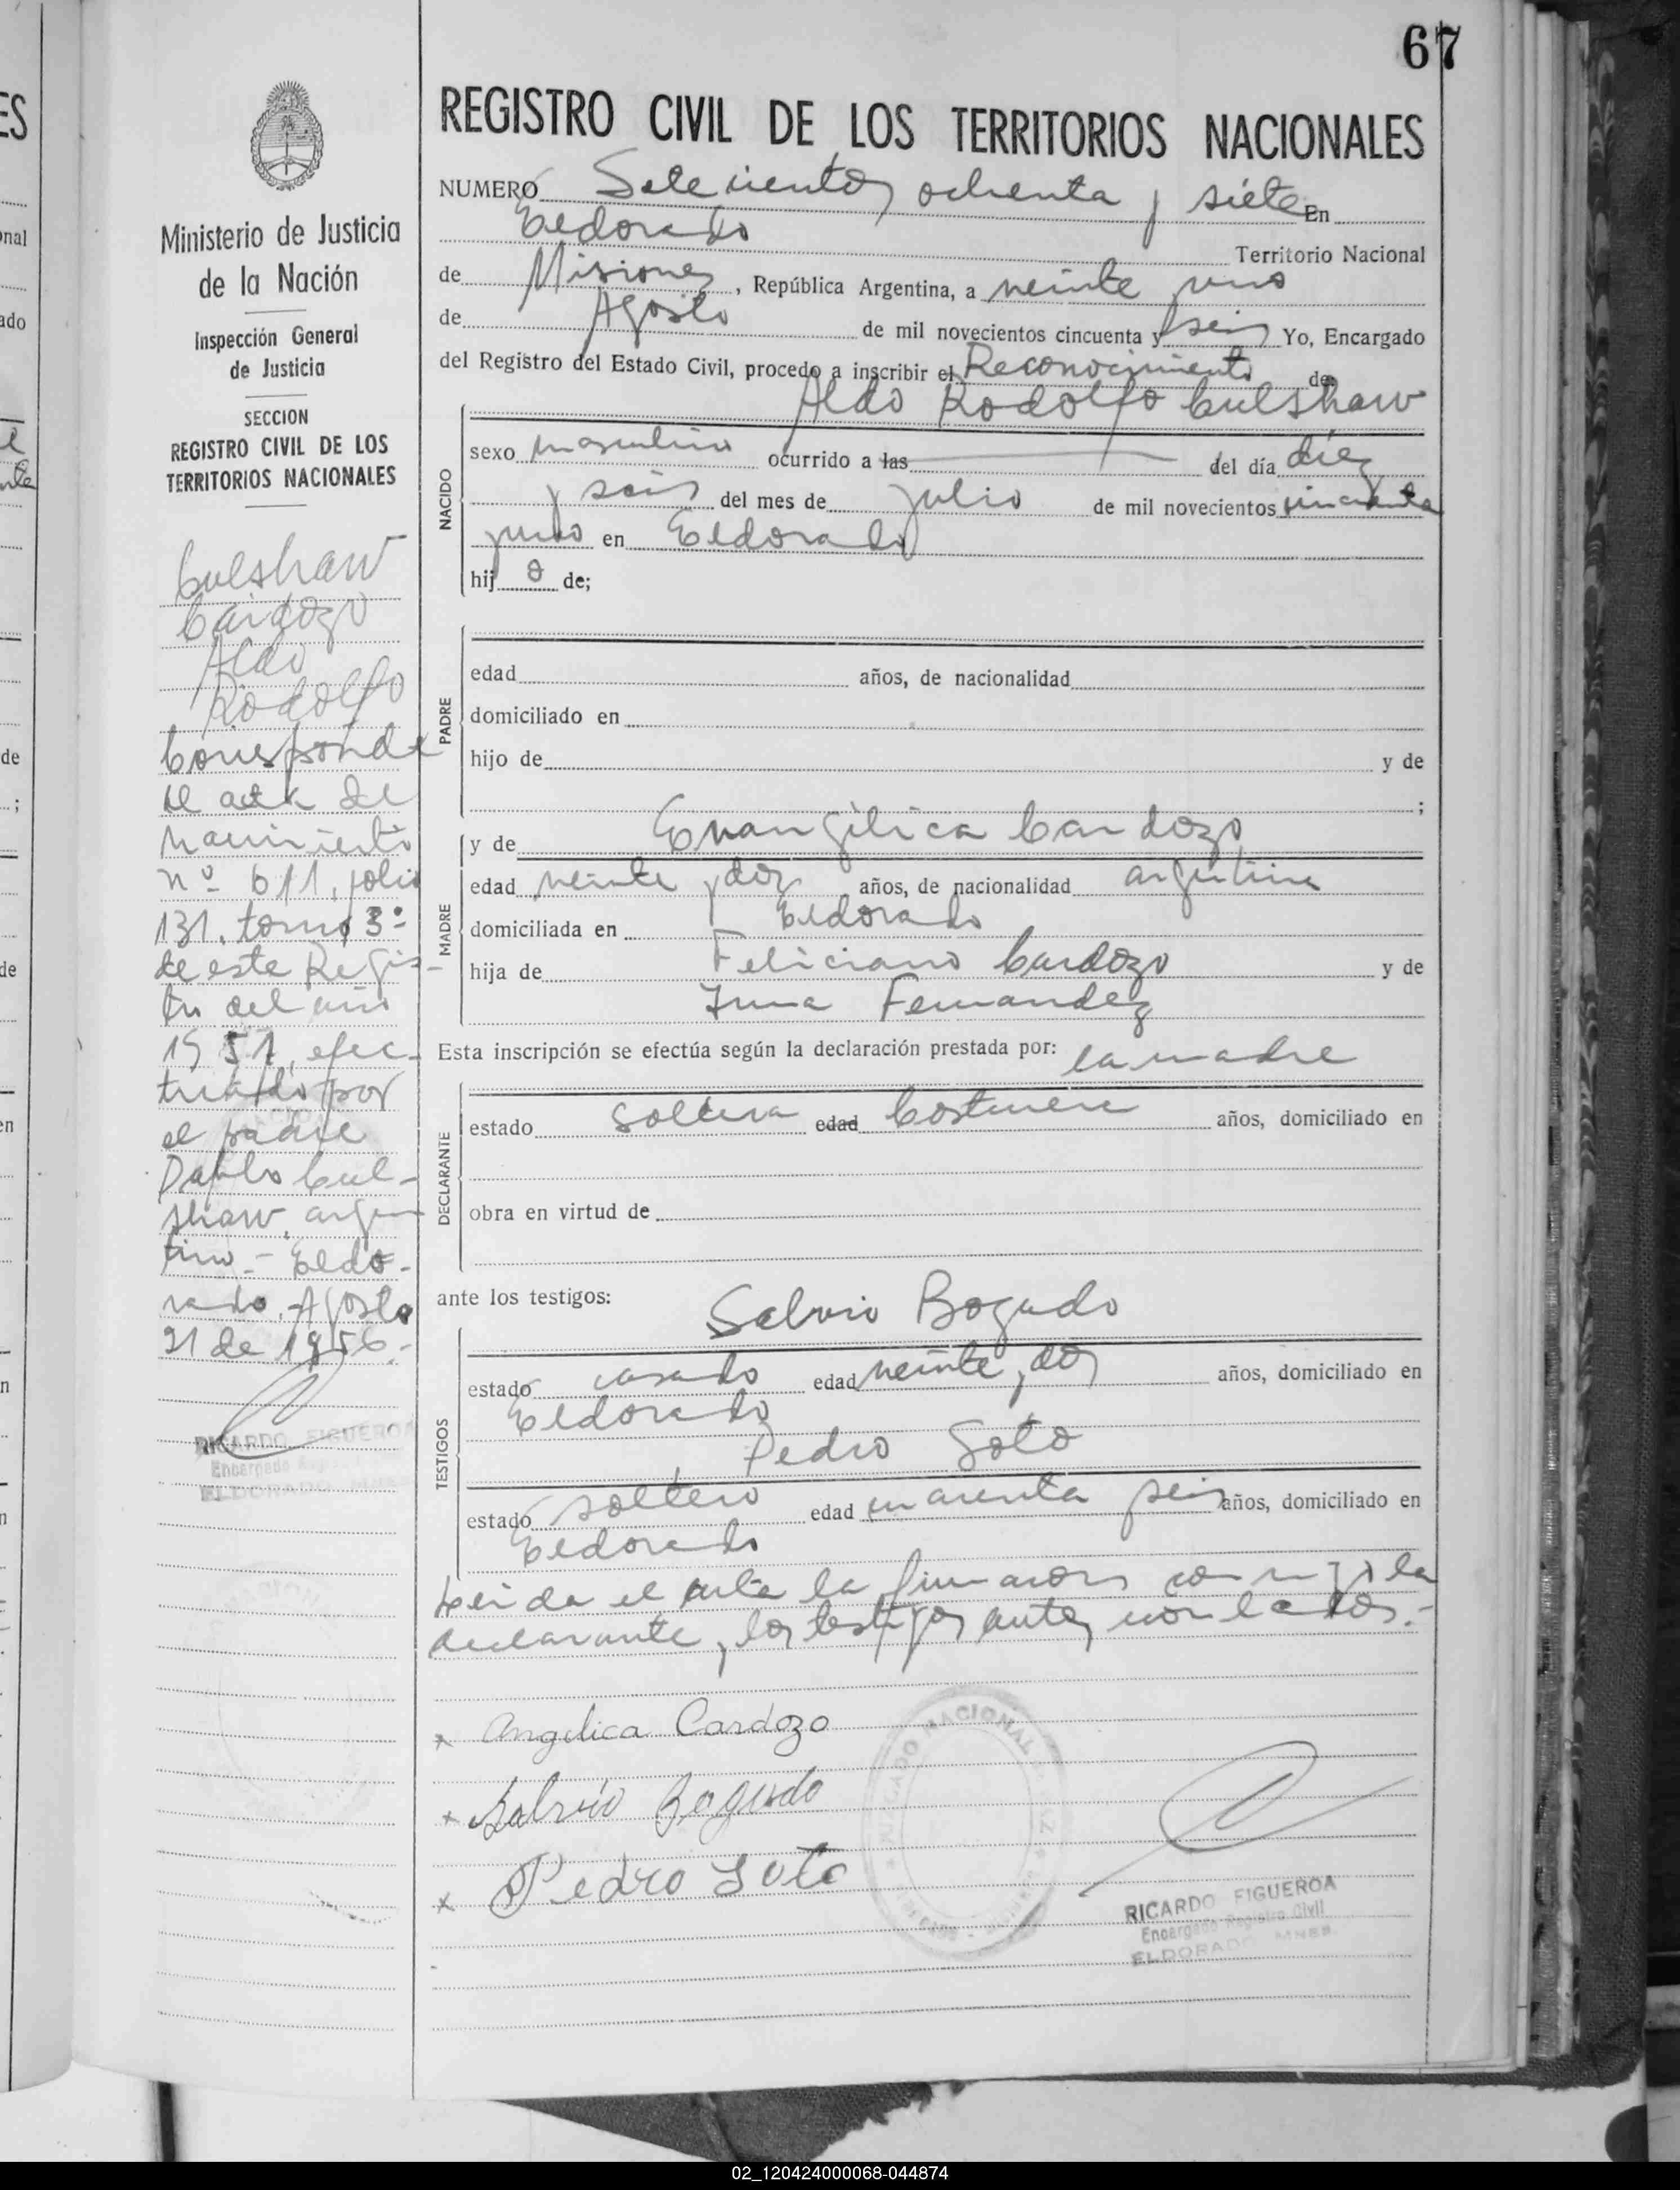 67
REGISTRO CIVIL DE LOS TERRITORIOS NACIONALES
NUMERO Setecientos ochenta y siete En
Eldorado Territorio Nacional
de Misiones, República Argentina, a veinte y uno
de Agosto de mil novecientos cincuenta y seis Yo, Encargado
del Registro del Estado Civil, procedo a inscribir el Reconocimiento de
Aldo Rodolfo Culshaw
NACIDO
sexo masculino ocurrido a las del día diez
y seis del mes de julio de mil novecientos cincuenta
y uno en Eldorado
hijo de;
PADRE
edad años, de nacionalidad
domiciliado en
hijo de y de
;
MADRE
y de Evangélica Cardozo
edad veinte y dos años, de nacionalidad argentina
domiciliada en Eldorado
hija de Feliciano Cardozo y de
Fernandez
Esta inscripción se efectúa según la declaración prestada por: la madre
DECLARANTE
estado soltera edad Costurera años, domiciliado en
obra en virtud de
ante los testigos: Salvio Bogado
TESTIGOS
estado casado edad veinte y dos años, domiciliado en
Eldorado
Pedro Soto
estado soltero edad cuarenta y seis años, domiciliado en
Eldorado
Leida el acta la firmaron conmigo la
declarante y los testigos antes nombrados.-
x Angelica Cardozo
x Salvio Bogado
x Pedro Soto
JUZGADO NACIONAL
RICARDO FIGUEROA
Encargado Registro Civil
ELDORADO MNES.
Ministerio de Justicia
de la Nación
Inspección General
de Justicia
SECCION
REGISTRO CIVIL DE LOS
TERRITORIOS NACIONALES
Culshaw
Cardozo
Aldo
Rodolfo
Corresponde
al acta de
nacimiento
nº 611, folio
131, tomo 3º
de este Regis-
tro del año
1951, efec-
tuado por
el padre
Pablo Cul-
shaw, argen-
tino - Eldo-
rado, Agosto
21 de 1956.-
RICARDO FIGUEROA
Encargado Registro
ELDORADO MNES
02_120424000068-044874